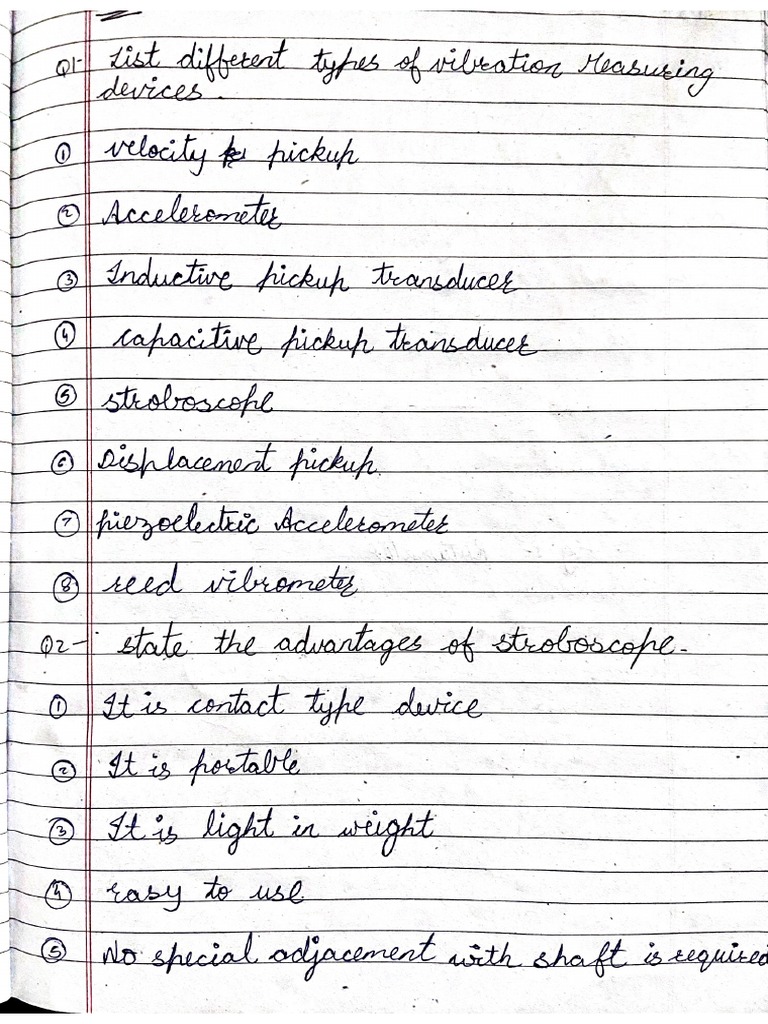 Q1- List different types of vibration measuring
devices.
① velocity pickup
② Accelerometer
③ Inductive pickup transducer
④ capacitive pickup transducer
⑤ stroboscope
⑥ Displacement pickup
⑦ piezoelectric Accelerometer
⑧ reed vibrometer
Q2- state the advantages of stroboscope.
① It is contact type device
② It is portable
③ It is light in weight
④ easy to use
⑤ No special adjacement with shaft is required